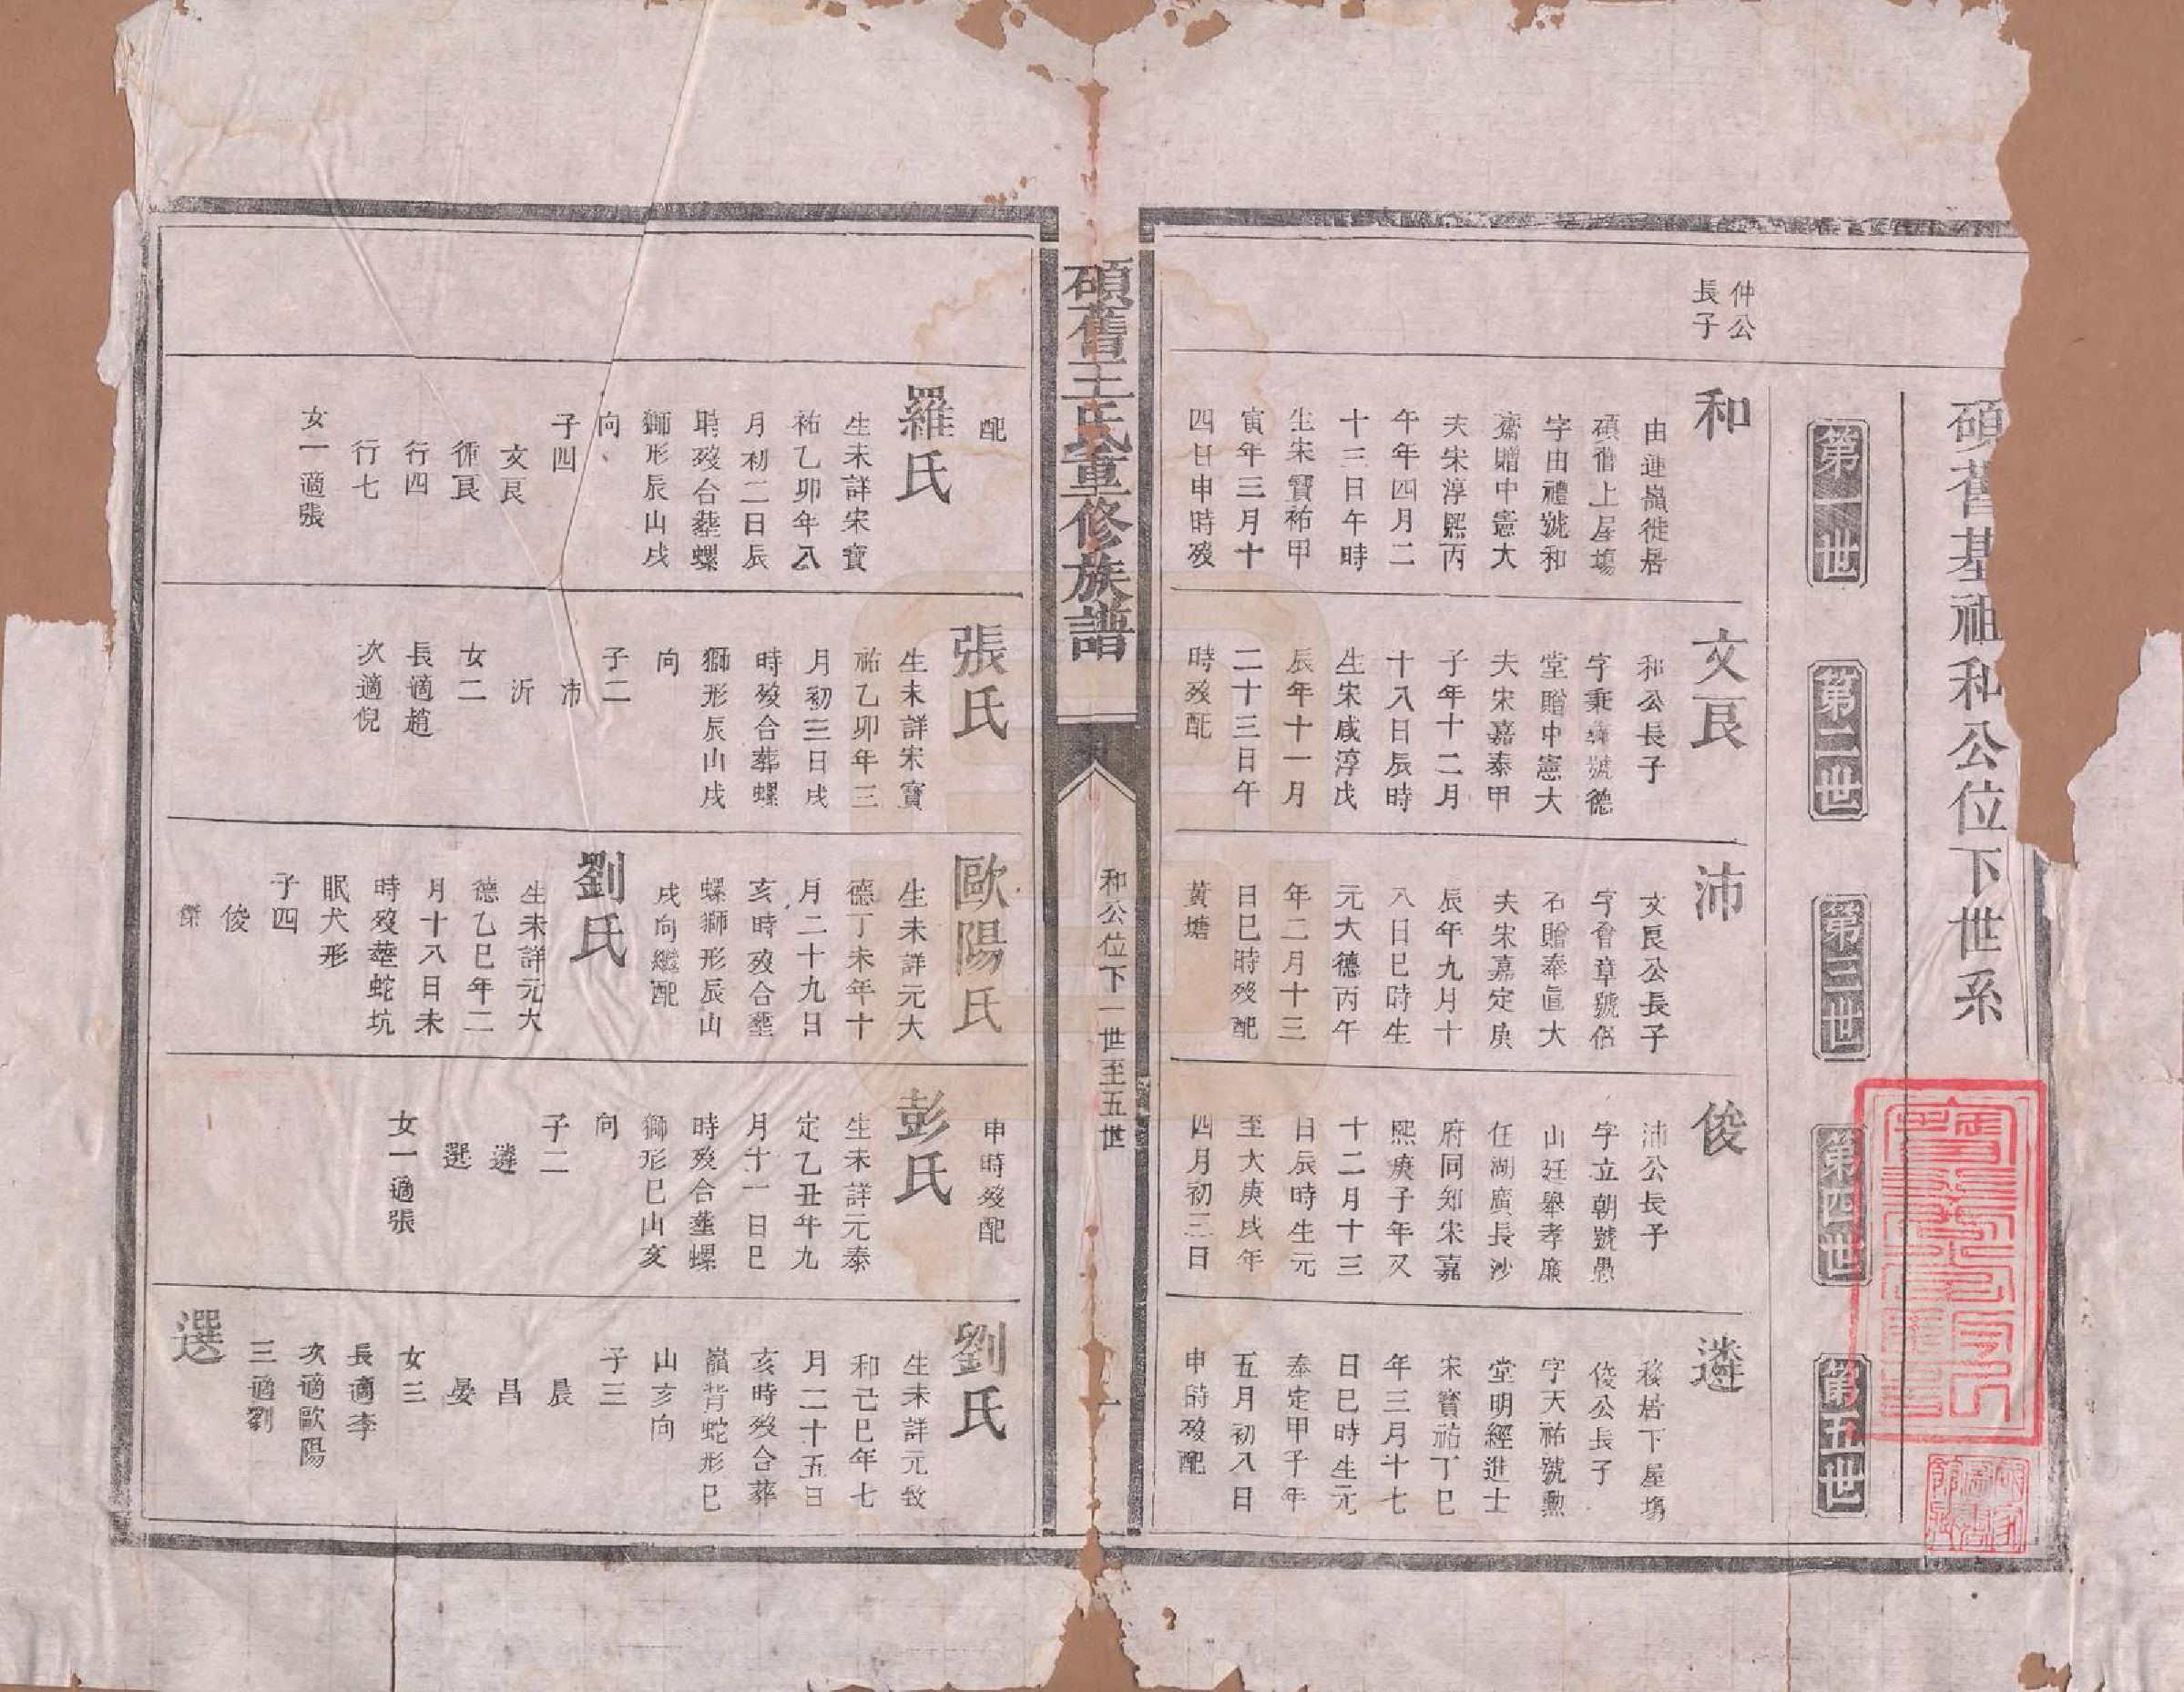 碩舊基祖和公位下世系
第一世
第二世
第三世
第四世
第五世
仲公
長子
和
由連嶺徙居
碩舊上屋塲
字由禮號和
齋贈中憲大
夫宋淳熙丙
午年四月二
十三日午時
生宋寶祐甲
寅年三月十
四日申時歿
文艮
和公長子
字秉彝號德
堂贈中憲大
夫宋嘉泰甲
子年十二月
十八日辰時
生宋咸淳戊
辰年十一月
二十三日午
時歿配
沛
文艮公長子
字會章號侶
石贈奉直大
夫宋嘉定庚
辰年九月十
八日巳時生
元大德丙午
年二月十三
日巳時歿配
黃塘
俊
沛公長子
字立朝號愚
山廷舉孝廉
任湖廣長沙
府同知宋嘉
熙庚子年又
十二月十三
日辰時生元
至大庚戌年
四月初三日
遴
移居下屋塲
俊公長子
字天祐號勲
堂明經進士
宋寶祐丁巳
年三月十七
日巳時生元
泰定甲子年
五月初八日
申時歿配
碩舊王氏重修族譜
和公位下一世至五世
一
配
羅氏
生未詳宋寶
祐乙卯年八
月初二日辰
時歿合塟螺
獅形辰山戌
向
子四
文艮
循艮
行四
行七
女一適張
張氏
生未詳宋寶
祐乙卯年三
月初三日戌
時歿合葬螺
獅形辰山戌
向
子二
沛
沂
女二
長適趙
次適倪
歐陽氏
生未詳元大
德丁未年十
月二十九日
亥時歿合塟
螺獅形辰山
戌向繼配
劉氏
生未詳元大
德乙巳年二
月十八日未
時歿塟蛇坑
眠犬形
子四
俊
傑
申時歿配
彭氏
生未詳元泰
定乙丑年九
月十一日巳
時歿合塟螺
獅形巳山亥
向
子二
遴
選
女一適張
劉氏
生未詳元致
和己巳年七
月二十五日
亥時歿合葬
嶺背蛇形巳
山亥向
子三
晨
昌
晏
女三
長適李
次適歐陽
三適劉
選